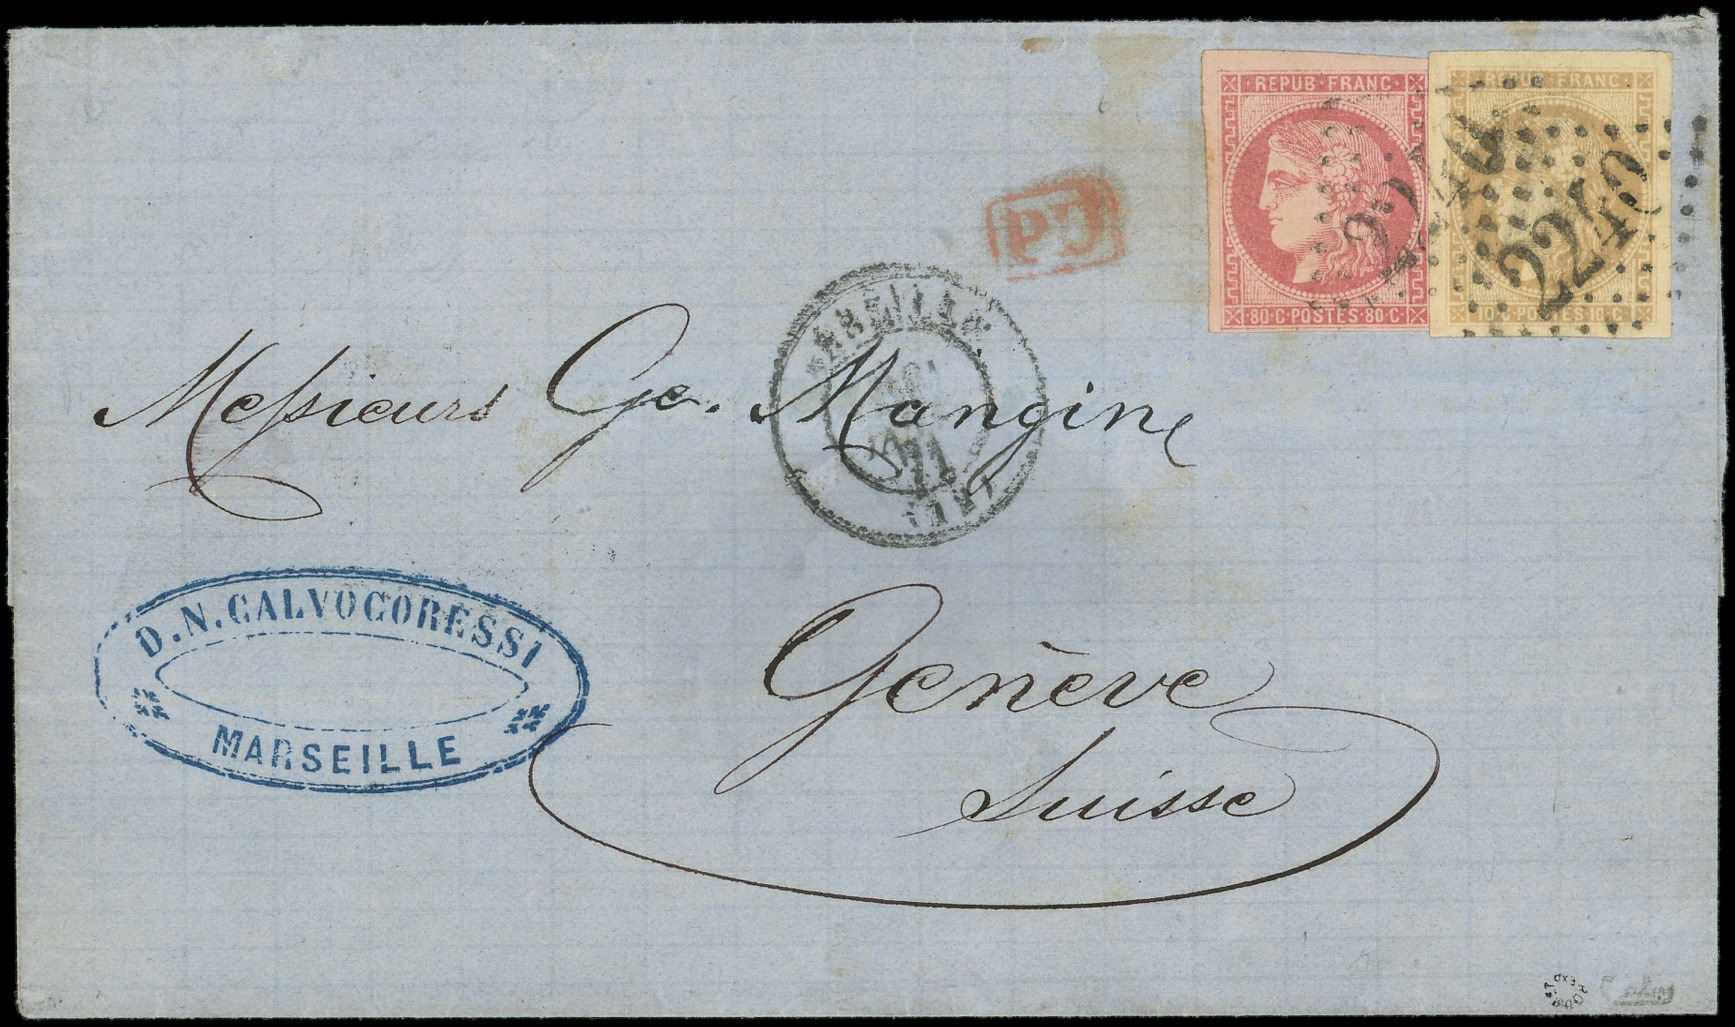 REPUB·FRANC·
80·C·POSTES·80·C·
REPUB·FRANC·
10·C·POSTES·10·C·
2240
2240
PD
MARSEILLE
71
Messieurs Ge. Mangin
D.N.CALVOCORESSI
MARSEILLE
Genève
Suisse